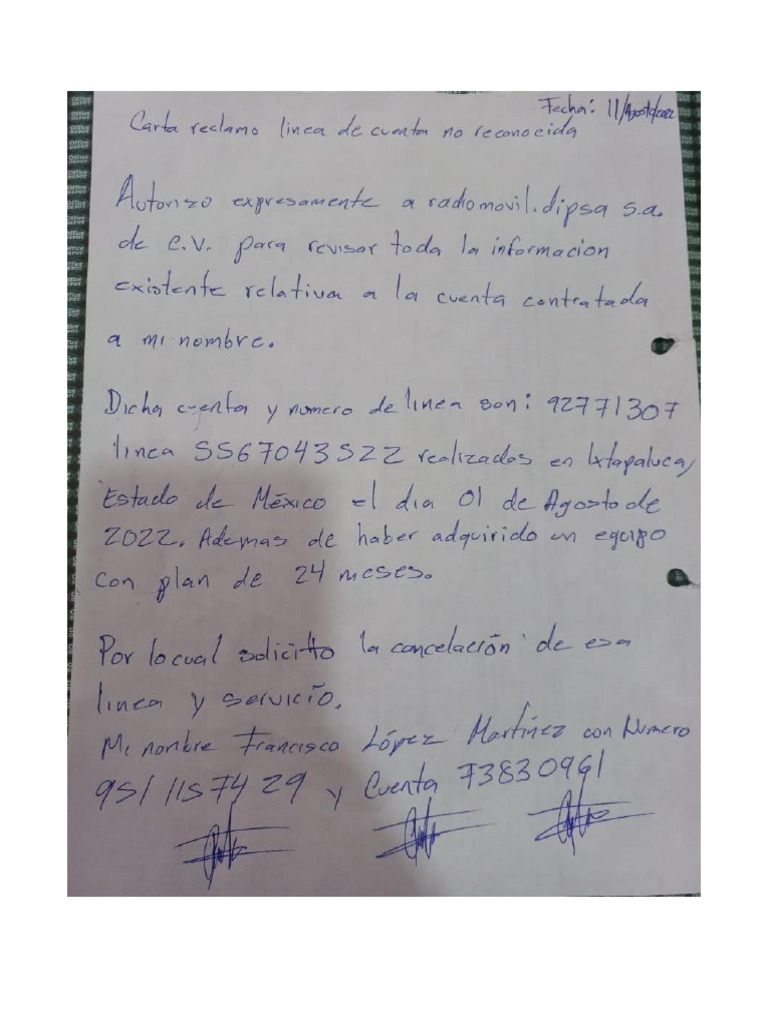 Fecha: 11/Agosto/2022
Carta reclamo linea de cuenta no reconocida
Autorizo expresamente a radiomovil.dipsa s.a.
de C.V. para revisar toda la informacion
existente relativa a la cuenta contratada
a mi nombre.
Dicha cuenta y numero de linea son: 92771307
linea 5567043522 realizados en Ixtapaluca,
Estado de México el dia 01 de Agosto de
2022. Ademas de haber adquirido un equipo
con plan de 24 meses.
Por lo cual solicitto la cancelación de esa
linea y servicio.
Mi nombre Francisco López Martínez con Numero
951 1157429 y Cuenta 73830961